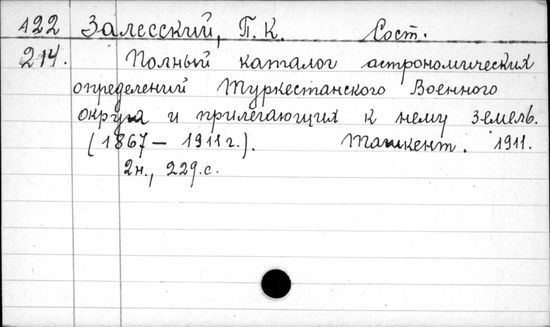 А22 Залесский, П.К. Сост.
214. Полный каталог астрономических
определений Туркестанского Военного
округа и прилегающих к нему земель.
(1867 – 1911 г.). Ташкент. 1911.
2н., 229 с.